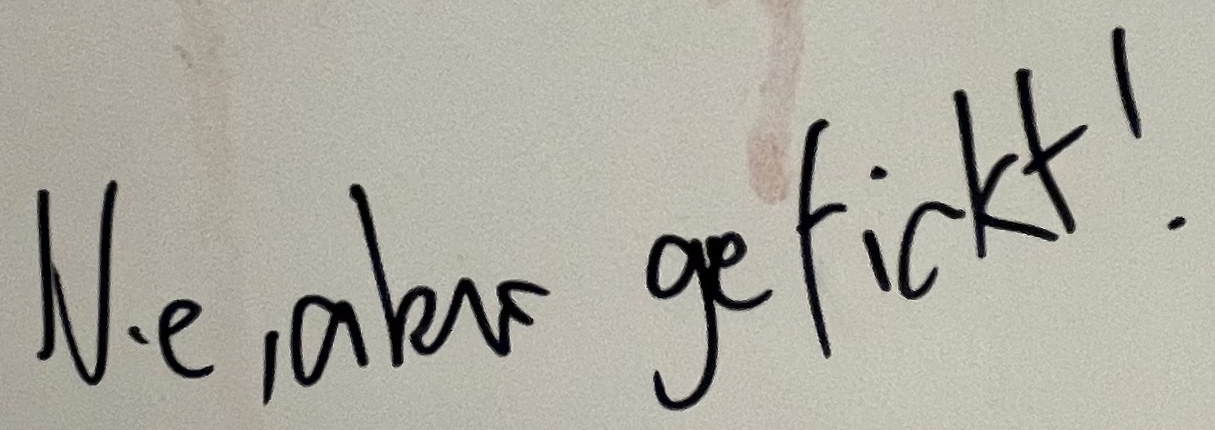 Ne, aber gefickt!